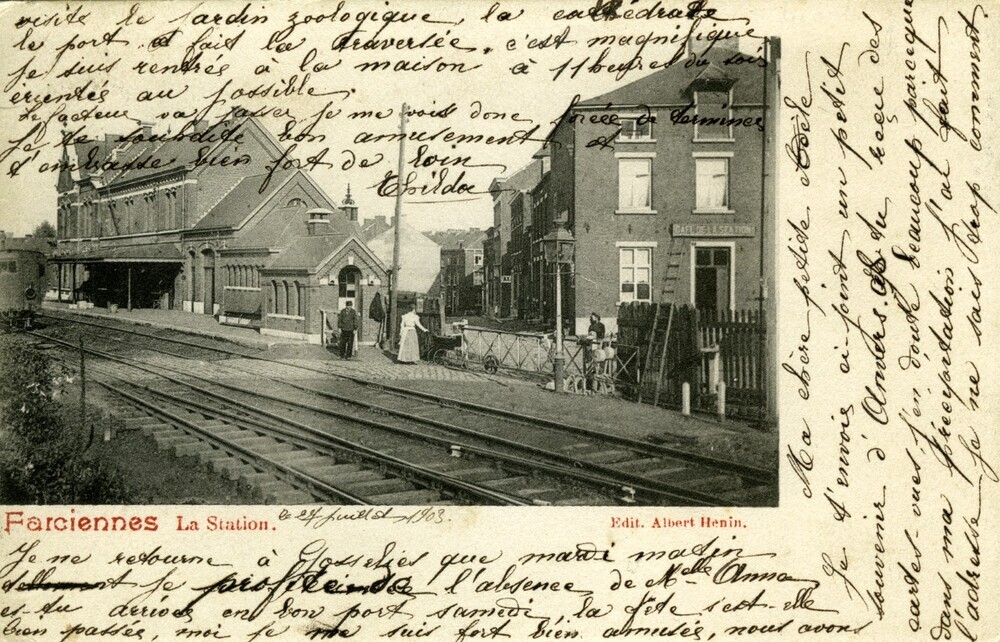 Ma chère petite Adèle
Je t'envoie ci-joint un petit
souvenir d'Anvers. As-tu reçue des
cartes-vues, j'en doute beaucoup parceque
dans ma précipitation j'ai fait
l'adresse je ne sais trop comment.
CAFE DE LA STATION
Farciennes La Station. le 27 juillet 1903.
Edit. Albert Henin.
Je ne retourne à Gosselies que mardi matin
je profite de l'absence de Melle Anna
es-tu arrivée en bon port samedi la fête s'est-elle
bien passée, moi je me suis fort bien amusée, nous avons
visité le jardin zoologique, la cathédrale
le port et fait la traversée, c'est magnifique
je suis rentrée à la maison à 11 heures du soir
éreintée au possible.
le facteur va passer je me vois donc forcée de terminer
Je te souhaite bon amusement et
t'embrasse bien fort de loin
Thilda